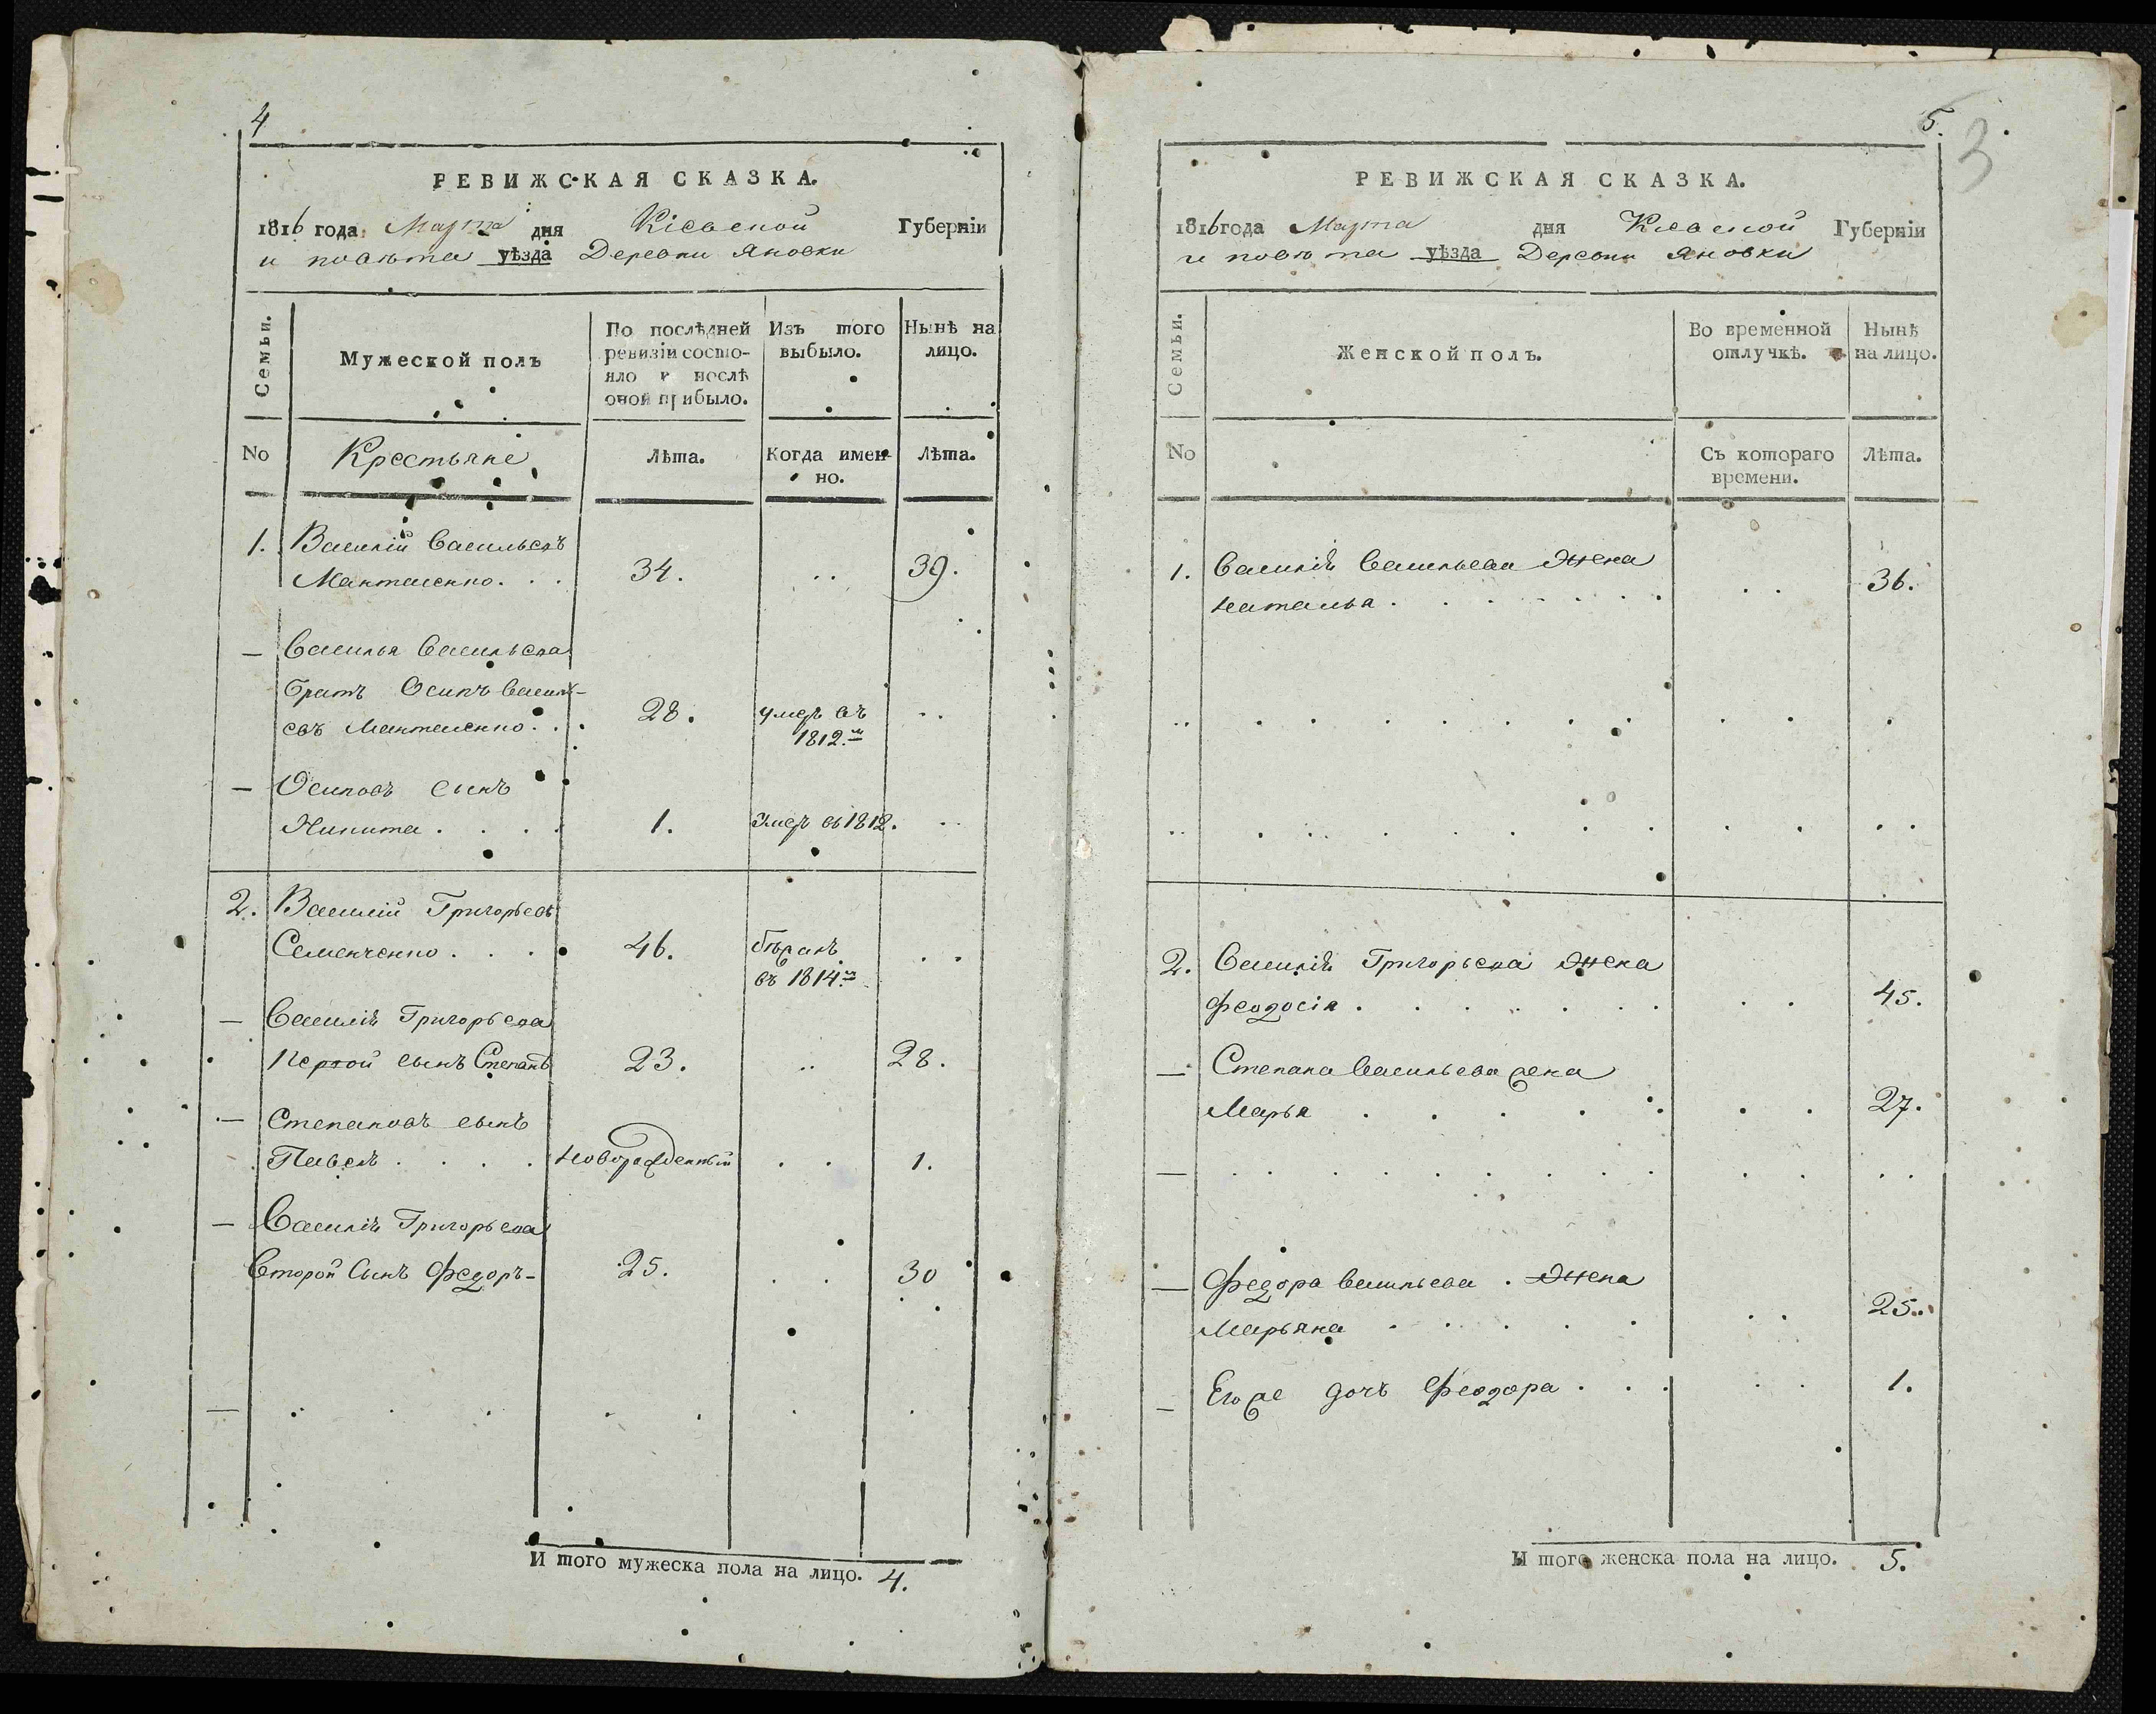 4
РЕВИЖСКАЯ СКАЗКА.
1816 года Марта дня Кіевской Губерніи
и повѣта уѣзда Деревни Яновки
Семьи.
Мужеской полъ
По послѣдней ревизіи состо-
яло и послѣ
оной прибыло.
Изъ того
выбыло.
Нынѣ на
лицо.
No
Крестьяне
Лѣта.
Когда имен-
но.
Лѣта.
1. Василій Васильевъ
34. .. 39.
— Василья Васильева
братъ Осипъ Василь-
евъ 28. умеръ въ ..
1812.м
— Осиповъ сынъ
Никита . . . . 1. Умеръ въ 1812. ..
2. Василій Григорьевъ
Семенченко . . . 46. . .
въ 1814.м
— Василія Григорьева
Первой сынъ Степанъ 23. .. 28.
— Степановъ сынъ
Павелъ . . . . новорожденный . . 1.
— Василія Григорьева
Второй Сынъ Федоръ- 25. . . 30
И того мужеска пола на лицо. 4.
5.
3
РЕВИЖСКАЯ СКАЗКА.
1816 года Марта дня Кіевской Губерніи
и повѣта уѣзда Деревни Яновки
Семьи.
Женской полъ.
Во временной
отлучкѣ.
Нынѣ
на лицо.
No
Съ котораго
времени.
Лѣта.
1. Василія Васильева жена
Наталья . . . . . . . . . 36.
2. Василія Григорьева жена
Феодосія . . . . . . . . . 45.
— Степана Васильева жена
Марья . . . . . . . 27.
— Федора Васильева . жена
Марьяна . . . . . . . 25.
— Его же дочь Феодора . . . . . 1.
И того женска пола на лицо. 5.